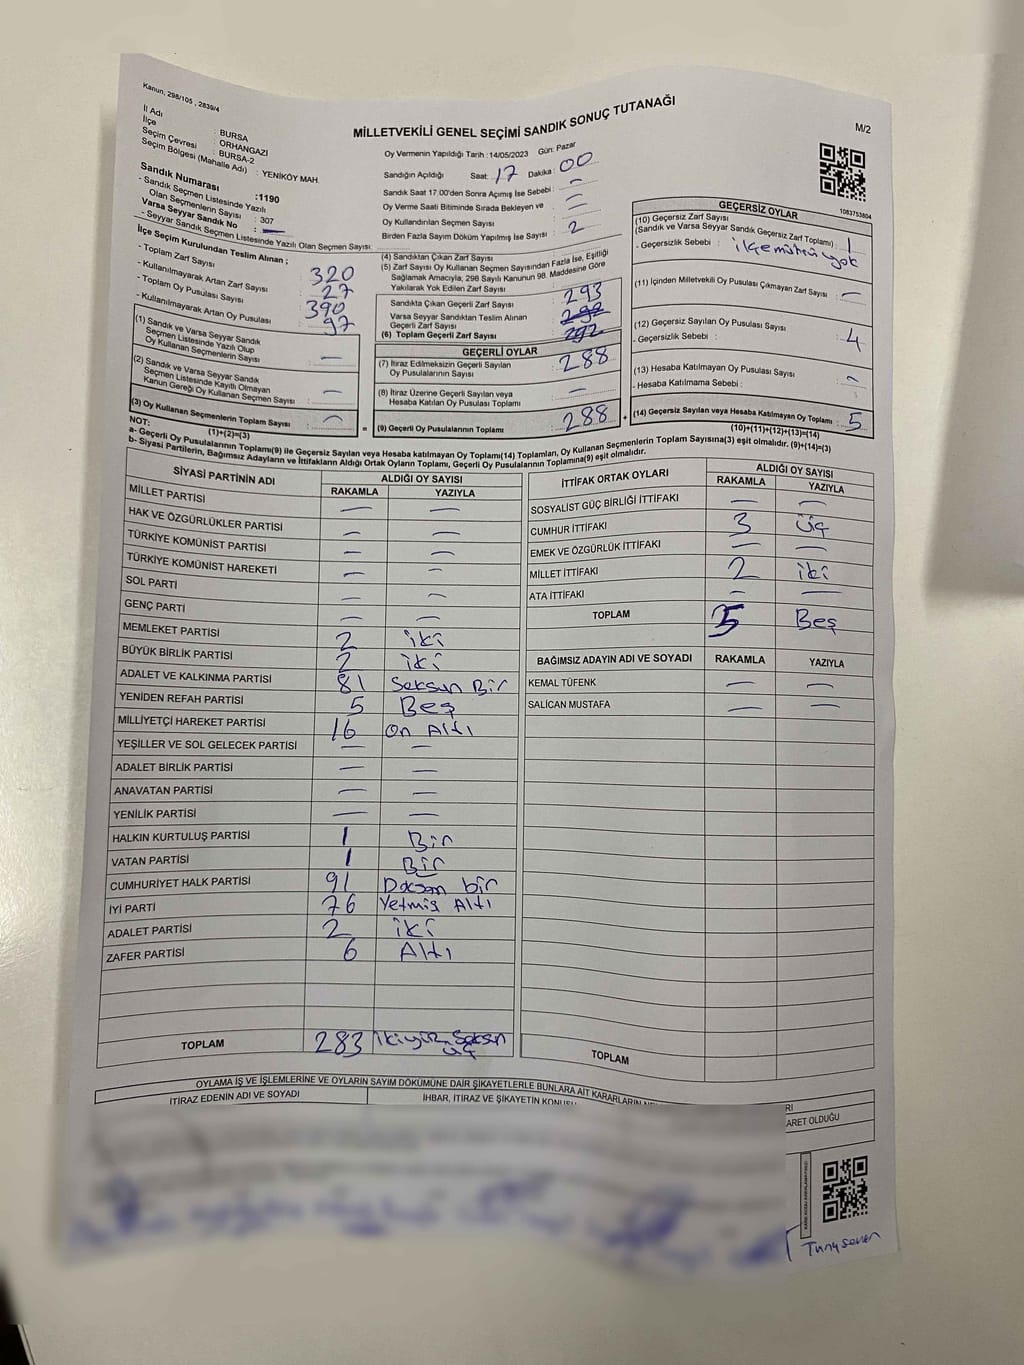 Kanun, 298/105 , 2839/4
MİLLETVEKİLİ GENEL SEÇİMİ SANDIK SONUÇ TUTANAĞI
M/2
İl Adı : BURSA
İlçe : ORHANGAZİ
Seçim Çevresi : BURSA-2
Seçim Bölgesi (Mahalle Adı) : YENİKÖY MAH.
Sandık Numarası :1190
- Sandık Seçmen Listesinde Yazılı
Olan Seçmenlerin Sayısı : 307
Varsa Seyyar Sandık No : —
- Seyyar Sandık Seçmen Listesinde Yazılı Olan Seçmen Sayısı:
Oy Vermenin Yapıldığı Tarih :14/05/2023 Gün: Pazar
Sandığın Açıldığı Saat: 17 Dakika: 00
Sandık Saat 17.00'den Sonra Açımış İse Sebebi : —
Oy Verme Saati Bitiminde Sırada Bekleyen ve : —
Oy Kullandırılan Seçmen Sayısı —
Birden Fazla Sayım Döküm Yapılmış İse Sayısı : 2
İlçe Seçim Kurulundan Teslim Alınan ;
- Toplam Zarf Sayısı : 320
- Kullanılmayarak Artan Zarf Sayısı : 27
- Toplam Oy Pusulası Sayısı : 390
- Kullanılmayarak Artan Oy Pusulası : 97
(1) Sandık ve Varsa Seyyar Sandık
Seçmen Listesinde Yazılı Olup
Oy Kullanan Seçmenlerin Sayısı : —
(2) Sandık ve Varsa Seyyar Sandık
Seçmen Listesinde Kayıtlı Olmayan
Kanun Gereği Oy Kullanan Seçmen Sayısı : —
(3) Oy Kullanan Seçmenlerin Toplam Sayısı : —
(1)+(2)=(3)
(4) Sandıktan Çıkan Zarf Sayısı
(5) Zarf Sayısı Oy Kullanan Seçmen Sayısından Fazla İse, Eşitliği
Sağlamak Amacıyla; 298 Sayılı Kanunun 98. Maddesine Göre
Yakılarak Yok Edilen Zarf Sayısı
Sandıkta Çıkan Geçerli Zarf Sayısı : 293
Varsa Seyyar Sandıktan Teslim Alınan
Geçerli Zarf Sayısı
(6) Toplam Geçerli Zarf Sayısı : 292
GEÇERLİ OYLAR
(7) İtiraz Edilmeksizin Geçerli Sayılan
Oy Pusulalarının Sayısı : 288
(8) İtiraz Üzerine Geçerli Sayılan veya
Hesaba Katılan Oy Pusulası Toplamı : —
= (9) Geçerli Oy Pusulalarının Toplamı : 288 +
1083753804
GEÇERSİZ OYLAR
(10) Geçersiz Zarf Sayısı
(Sandık ve Varsa Seyyar Sandık Geçersiz Zarf Toplamı) : 1
- Geçersizlik Sebebi : ilçe mührü yok
(11) İçinden Milletvekili Oy Pusulası Çıkmayan Zarf Sayısı : —
(12) Geçersiz Sayılan Oy Pusulası Sayısı : 4
- Geçersizlik Sebebi :
(13) Hesaba Katılmayan Oy Pusulası Sayısı : —
- Hesaba Katılmama Sebebi :
(14) Geçersiz Sayılan veya Hesaba Katılmayan Oy Toplamı : 5
(10)+(11)+(12)+(13)=(14)
NOT:
a- Geçerli Oy Pusulalarının Toplamı(9) ile Geçersiz Sayılan veya Hesaba katılmayan Oy Toplamı(14) Toplamları, Oy Kullanan Seçmenlerin Toplam Sayısına(3) eşit olmalıdır. (9)+(14)=(3)
b- Siyasi Partilerin, Bağımsız Adayların ve İttifakların Aldığı Ortak Oyların Toplamı, Geçerli Oy Pusulalarının Toplamına(9) eşit olmalıdır.
SİYASİ PARTİNİN ADI ALDIĞI OY SAYISI
RAKAMLA YAZIYLA
MİLLET PARTİSİ — —
HAK VE ÖZGÜRLÜKLER PARTİSİ — —
TÜRKİYE KOMÜNİST PARTİSİ — —
TÜRKİYE KOMÜNİST HAREKETİ — —
SOL PARTİ — —
GENÇ PARTİ — —
MEMLEKET PARTİSİ 2 iki
BÜYÜK BİRLİK PARTİSİ 2 iki
ADALET VE KALKINMA PARTİSİ 81 Seksan Bir
YENİDEN REFAH PARTİSİ 5 Beş
MİLLİYETÇİ HAREKET PARTİSİ 16 On Altı
YEŞİLLER VE SOL GELECEK PARTİSİ — —
ADALET BİRLİK PARTİSİ — —
ANAVATAN PARTİSİ — —
YENİLİK PARTİSİ — —
HALKIN KURTULUŞ PARTİSİ 1 Bir
VATAN PARTİSİ 1 Bir
CUMHURİYET HALK PARTİSİ 91 Doksan bir
İYİ PARTİ 76 Yetmiş Altı
ADALET PARTİSİ 2 iki
ZAFER PARTİSİ 6 Altı
TOPLAM 283 ikiyüz Seksan
üç
İTTİFAK ORTAK OYLARI ALDIĞI OY SAYISI
RAKAMLA YAZIYLA
SOSYALİST GÜÇ BİRLİĞİ İTTİFAKI — —
CUMHUR İTTİFAKI 3 üç
EMEK VE ÖZGÜRLÜK İTTİFAKI — —
MİLLET İTTİFAKI 2 iki
ATA İTTİFAKI — —
TOPLAM 5 Beş
BAĞIMSIZ ADAYIN ADI VE SOYADI RAKAMLA YAZIYLA
KEMAL TÜFENK — —
SALİCAN MUSTAFA — —
TOPLAM
OYLAMA İŞ VE İŞLEMLERİNE VE OYLARIN SAYIM DÖKÜMÜNE DAİR ŞİKAYETLERLE BUNLARA AİT KARARLARIN
İTİRAZ EDENİN ADI VE SOYADI İHBAR, İTİRAZ VE ŞİKAYETİN KONUSU
ARET OLDUĞU